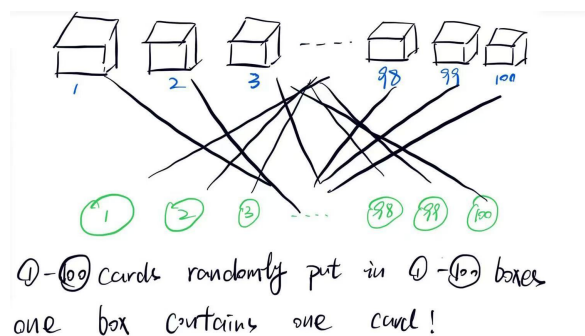 1 2 3 98 99 100
① ② ③ .... 98 99 100
①-100 cards randomly put in ①-100 boxes
one box contains one card!